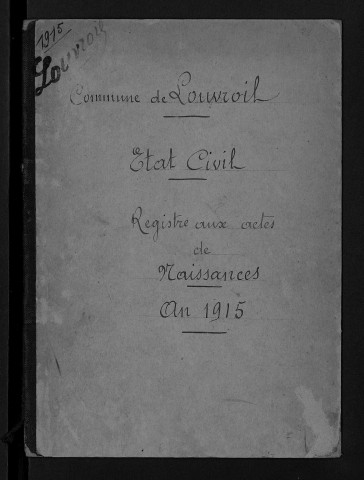 1915
Louvroil
Commune de Louvroil
Etat Civil
Registre aux actes
de
Naissances
An 1915